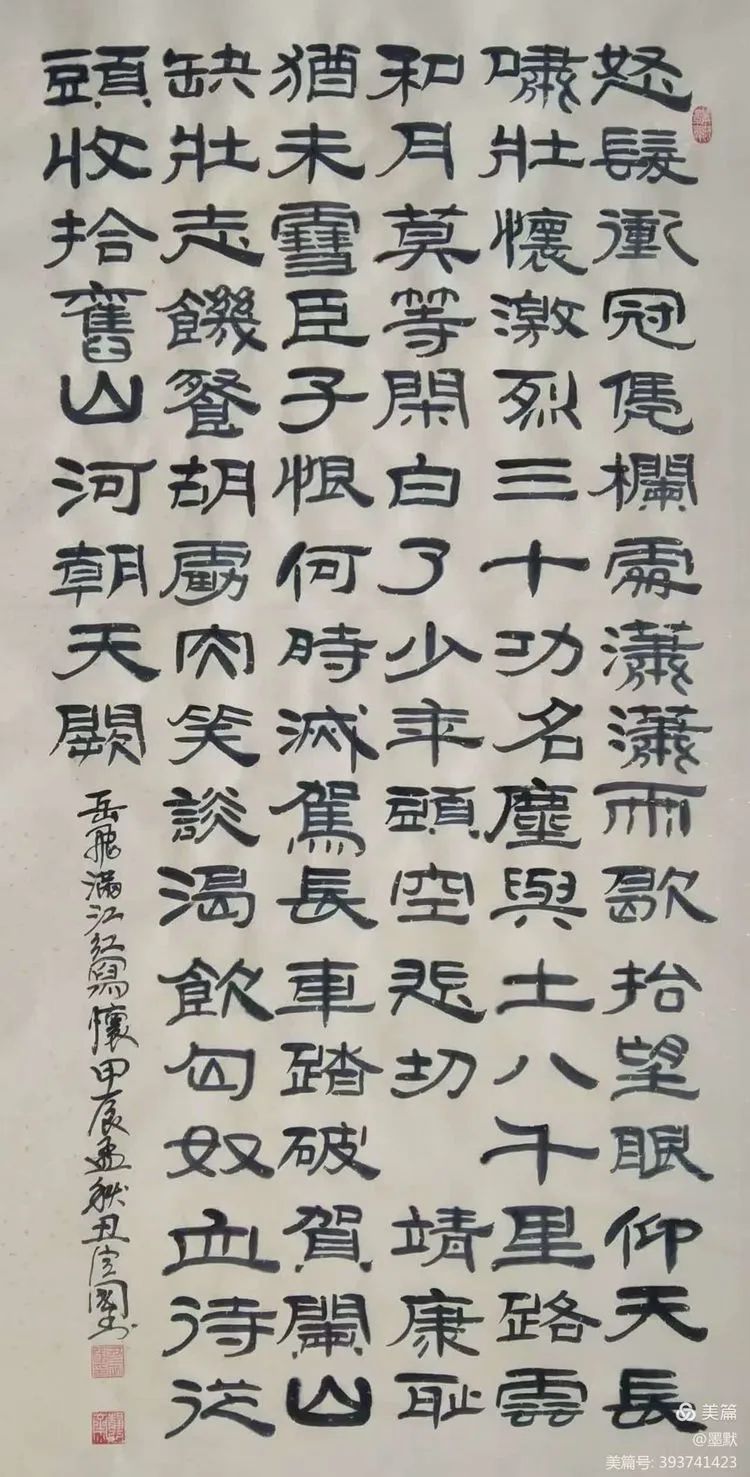 怒髮衝冠凭欄處瀟瀟雨歇抬望眼仰天長
嘯壯懷激烈三十功名塵與土八千里路雲
和月莫等閑白了少年頭空悲切 靖康耻
猶未雪臣子恨何時滅駕長車踏破賀闌山
缺壯志饑餐胡虜肉笑談渴飲匈奴血待從
頭收拾舊山河朝天闕
岳飛滿江紅寫懷甲辰孟秋丑國书
美篇
@墨默
美篇号: 393741423